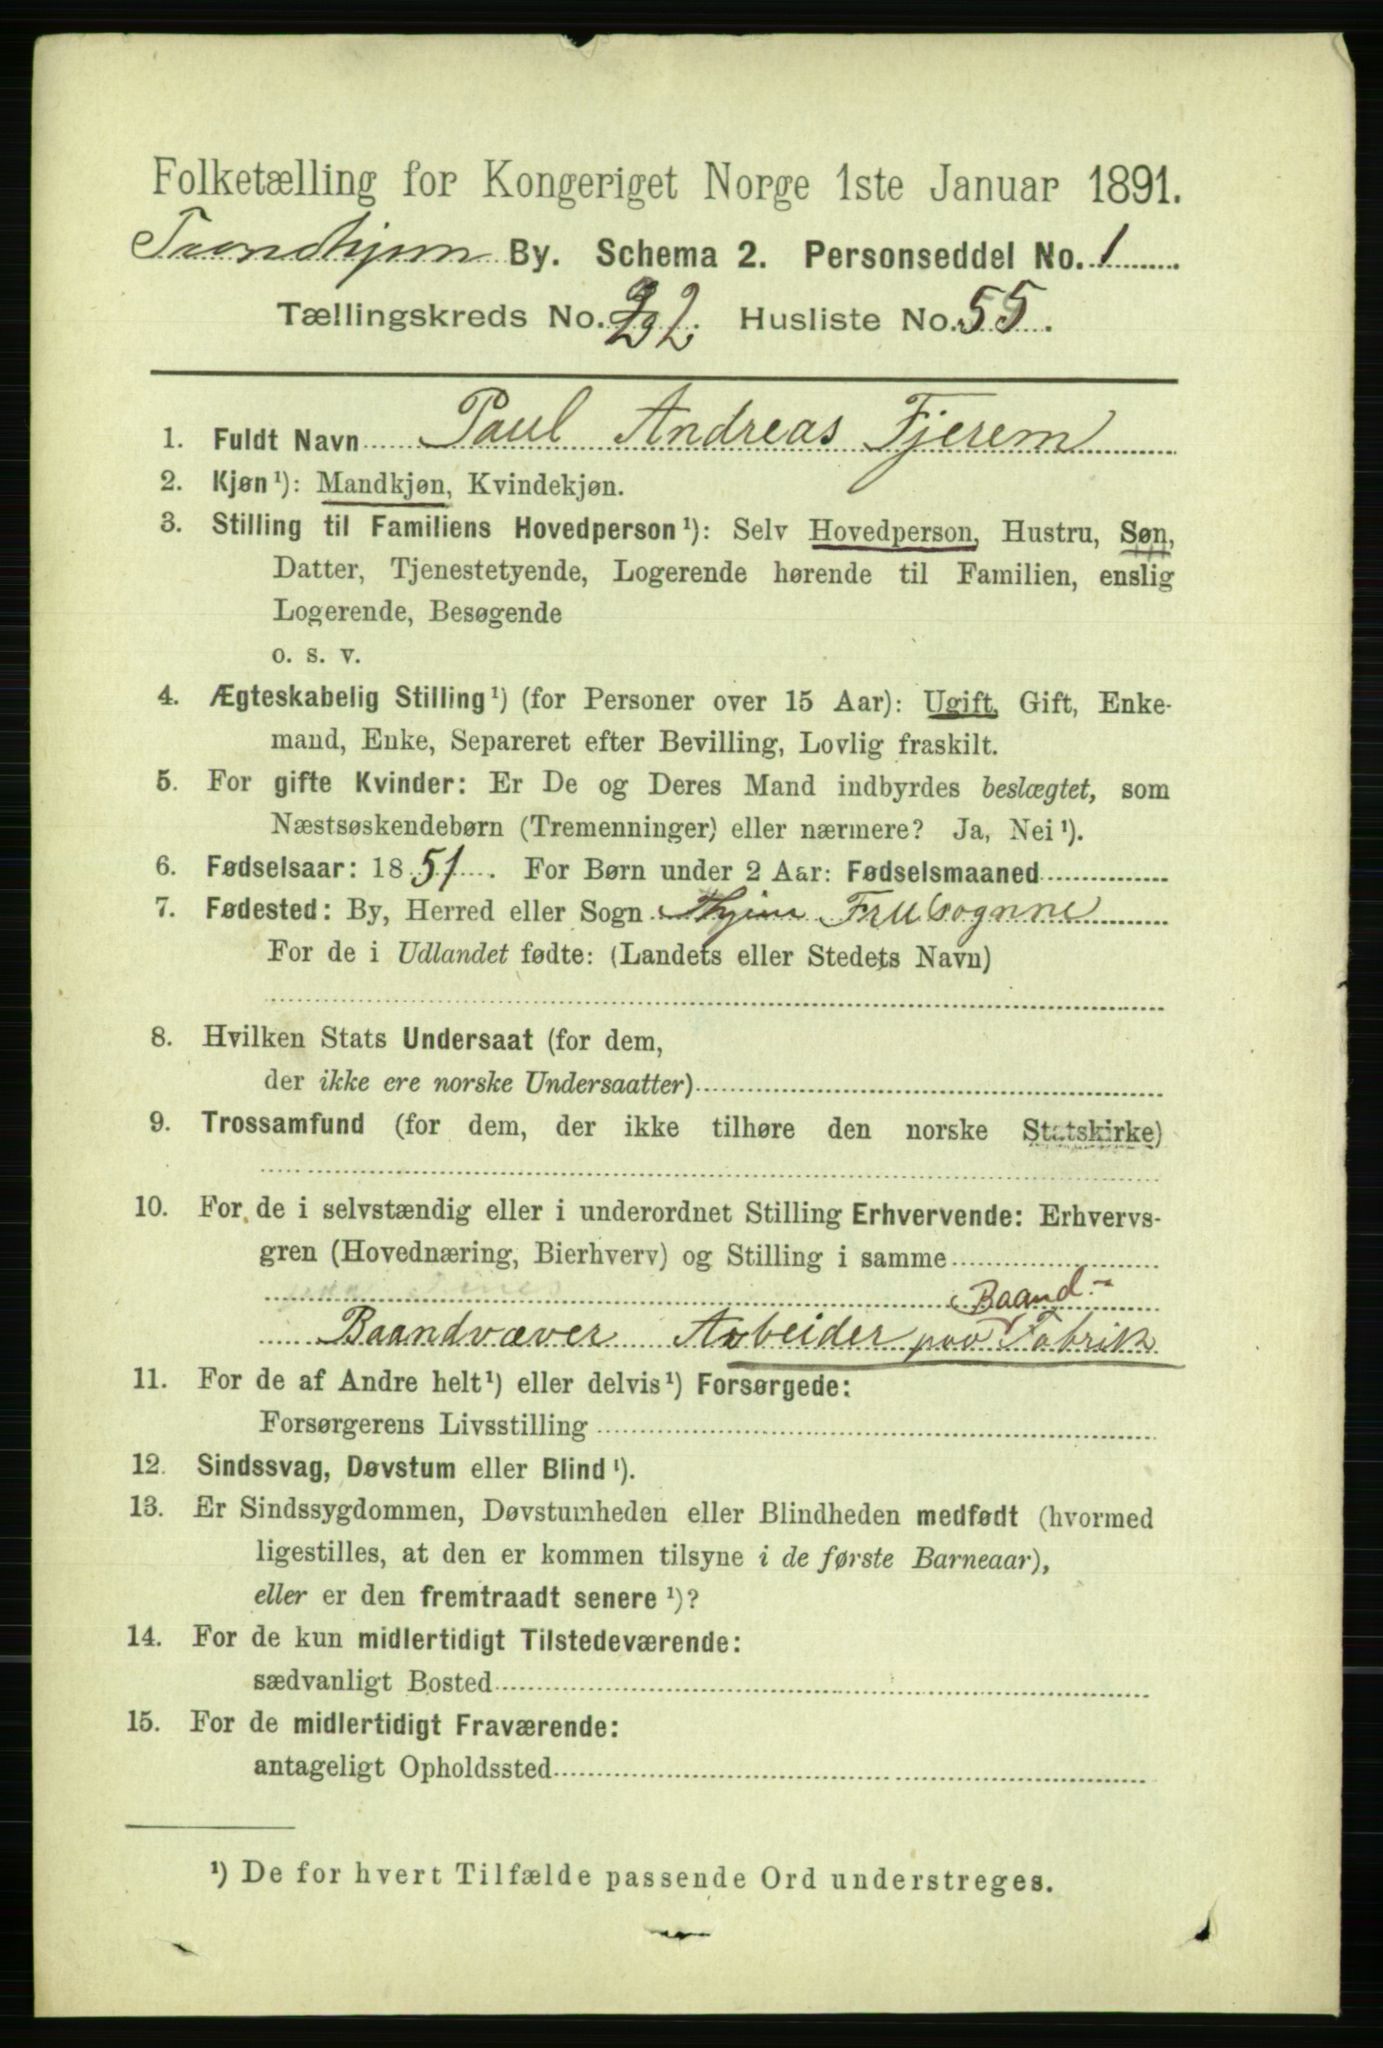 Folketælling for Kongeriget Norge 1ste Januar 1891.
Trondhjem By. Schema 2. Personseddel No. 1
Tællingskreds No. 22. Husliste No. 55.
1. Fuldt Navn Paul Andreas Fjerem
2. Kjøn¹): Mandkjøn, Kvindekjøn.
3. Stilling til Familiens Hovedperson¹): Selv Hovedperson, Hustru, Søn,
Datter, Tjenestetyende, Logerende hørende til Familien, enslig
Logerende, Besøgende
o. s. v.
4. Ægteskabelig Stilling¹) (for Personer over 15 Aar): Ugift, Gift, Enke-
mand, Enke, Separeret efter Bevilling, Lovlig fraskilt.
5. For gifte Kvinder: Er De og Deres Mand indbyrdes beslægtet, som
Næstsøskendebørn (Tremenninger) eller nærmere? Ja, Nei¹).
6. Fødselsaar: 1851. For Børn under 2 Aar: Fødselsmaaned
7. Fødested: By, Herred eller Sogn Thjem Fru sogne
For de i Udlandet fødte: (Landets eller Stedets Navn)
8. Hvilken Stats Undersaat (for dem,
der ikke ere norske Undersaatter)
9. Trossamfund (for dem, der ikke tilhøre den norske Statskirke)
10. For de i selvstændig eller i underordnet Stilling Erhvervende: Erhvervs-
gren (Hovednæring, Bierhverv) og Stilling i samme
Baand-
Baandvæver Arbeider paa Fabrik
11. For de af Andre helt¹) eller delvis¹) Forsørgede:
Forsørgerens Livsstilling
12. Sindssvag, Døvstum eller Blind¹).
13. Er Sindssygdommen, Døvstumheden eller Blindheden medfødt (hvormed
ligestilles, at den er kommen tilsyne i de første Barneaar),
eller er den fremtraadt senere¹)?
14. For de kun midlertidigt Tilstedeværende:
sædvanligt Bosted
15. For de midlertidigt Fraværende:
antageligt Opholdssted
¹) De for hvert Tilfælde passende Ord understreges.